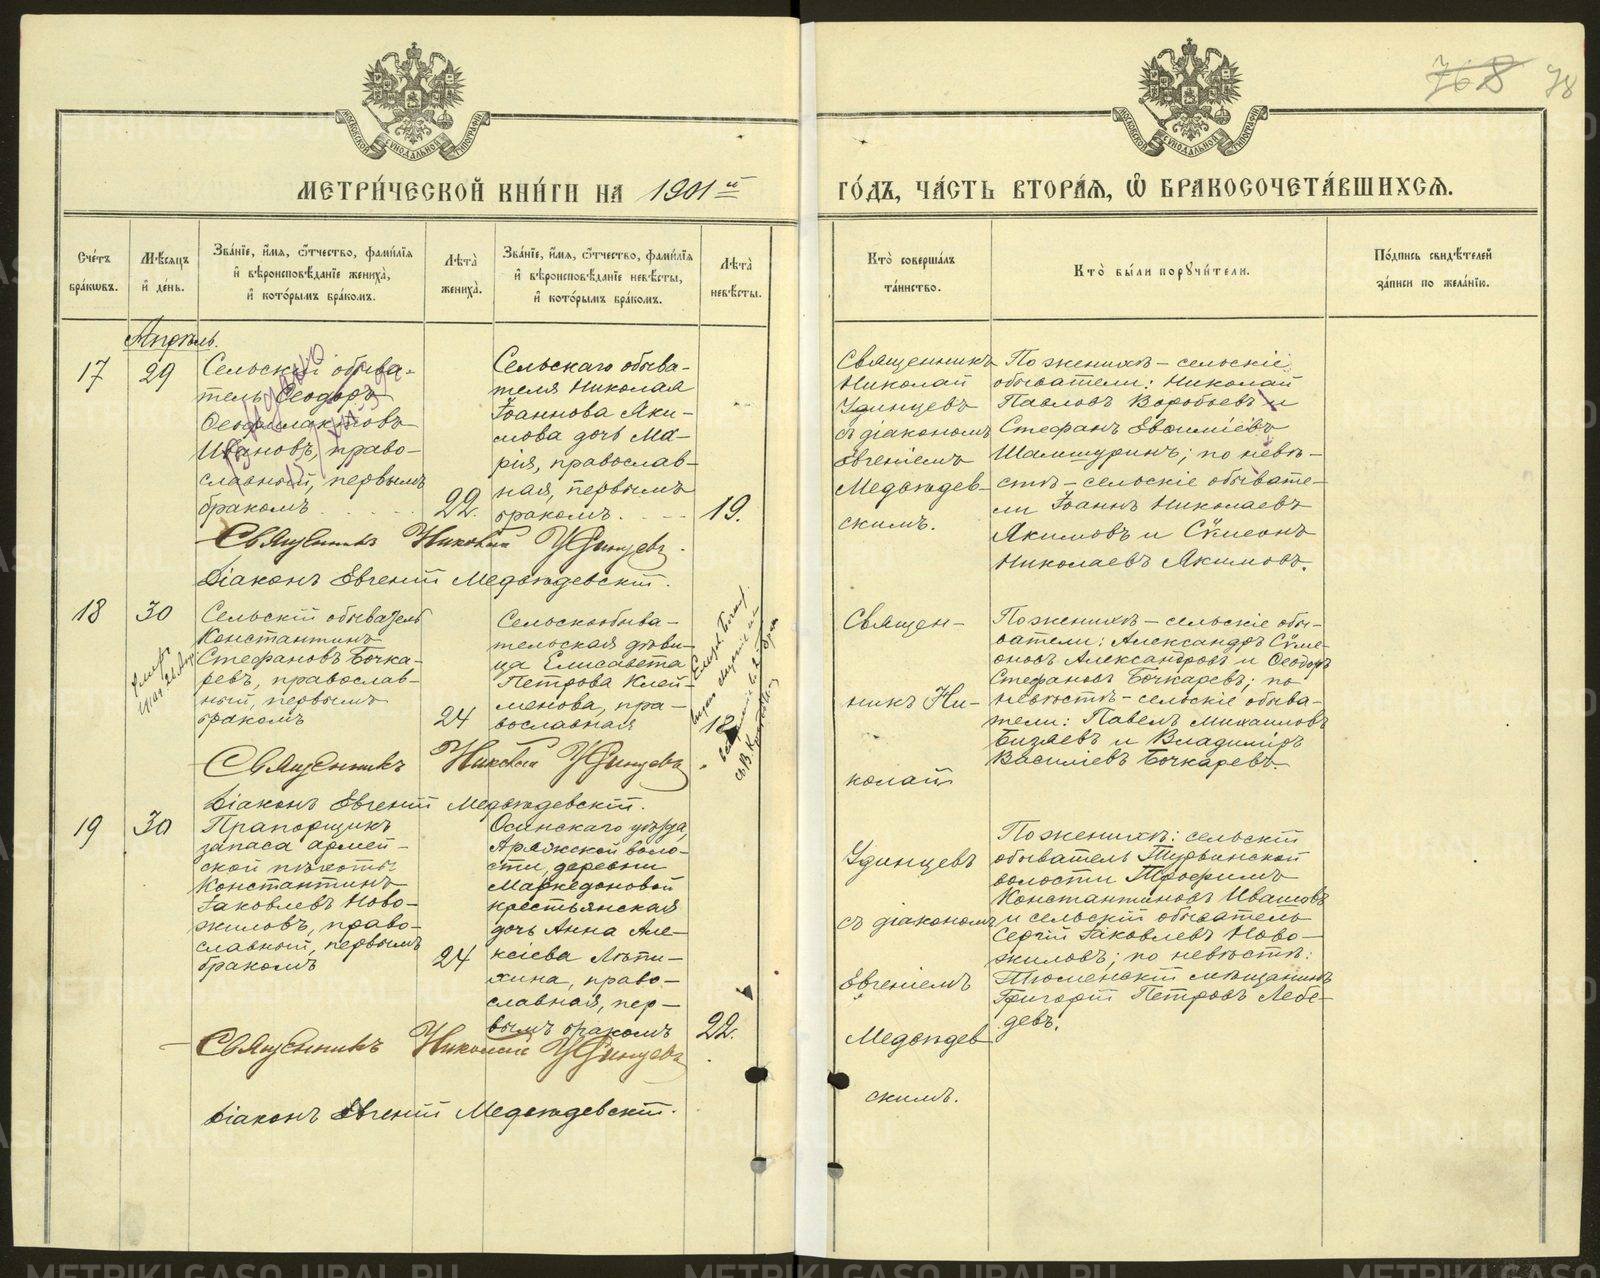 МЕТРИ́ЧЕСКОЙ КНИ́ГИ НА 1901 й
ГО́ДЪ, ЧА́СТЬ ВТОРА́Я, Ѡ҆ БРАКОСОЧЕТА́ВШИХСЯ.
78
Сче́тъ бра́кѡвъ.
Мѣ́сяцъ и҆ де́нь.
Зва́нїе, и҆́мя, ѻ҆́тчество, фамилі́я
и҆ вѣроисповѣ́данїе жениха̀,
и҆ кото́рымъ бра́комъ.
Лѣта̀ жениха̀.
Зва́нїе, и҆́мя, ѻ҆́тчество, фами́лїя
и҆ вѣроисповѣ́данїе невѣ́сты,
и҆ кото́рымъ бра́комъ.
Лѣта̀ невѣ́сты.
Кто̀ соверша́лъ та́инство.
Кто̀ бы́ли поручи́тели.
По́дпись свидѣ́телей за́писи по жела́нїю.
Апрѣль.
17
29
Сельскій обыва-
тель Ѳеодоръ
Ѳеофилактовъ
Ивановъ, право-
славный, первымъ
бракомъ
22.
Сельскаго обыва-
теля Николая
Іоаннова Яки-
мова дочь Ма-
рія, православ-
ная, первымъ
бракомъ.
19.
Священникъ
Николай
Удинцевъ
съ діакономъ
Евгеніемъ
Медвѣдев-
скимъ.
По женихѣ – сельскіе
обыватели: Николай
Павловъ Воробьевъ и
Стефанъ Евѳиміевъ
Шамшуринъ; по невѣ-
стѣ – сельскіе обывате-
ли Іоаннъ Николаевъ
Якимовъ и Сѵмеонъ
Николаевъ Якимовъ.
Священникъ Николай Удинцевъ.
Діаконъ Евгеній Медвѣдевскій.
18
30
Сельскій обыватель
Константинъ
Стефановъ Бочка-
ревъ, православ-
ный, первымъ
бракомъ
24
Сельскообыва-
тельская дѣви-
ца Елисавета
Петрова Клей-
менова, пра-
вославная
18
Священ-
никъ Ни-
колай
По женихѣ – сельскіе обы-
ватели: Александръ Сѵме-
оновъ Александровъ и Ѳеодоръ
Стефановъ Бочкаревъ; по
невѣстѣ – сельскіе обыва-
тели: Павелъ Михаиловъ
Бизяевъ и Владиміръ
Василіевъ Бочкаревъ.
Священникъ Николай Удинцевъ
Діаконъ Евгеній Медвѣдевскій.
19
30
Прапорщикъ
запаса армей-
ской пѣхоты
Константинъ
Іаковлевъ Ново-
жиловъ, право-
славный, первымъ
бракомъ
24
Осинскаго уѣзда,
Аряжской воло-
сти, деревни
Маркедоновой
крестьянская
дочь Анна Але-
ксіева Лѣпи-
хина, право-
славная, пер-
вымъ бракомъ
22.
Удинцевъ
съ діакономъ
Евгеніемъ
Медвѣдев
скимъ.
По женихѣ: сельскій
обыватель Турвинской
волости Трофимъ
Константиновъ Ивашовъ
и сельскій обыватель
Сергій Іаковлевъ Ново-
жиловъ; по невѣстѣ:
Тюменскій мѣщанинъ
Григорій Петровъ Лебе-
девъ.
Священникъ Николай Удинцевъ
Діаконъ Евгеній Медвѣдевскій.